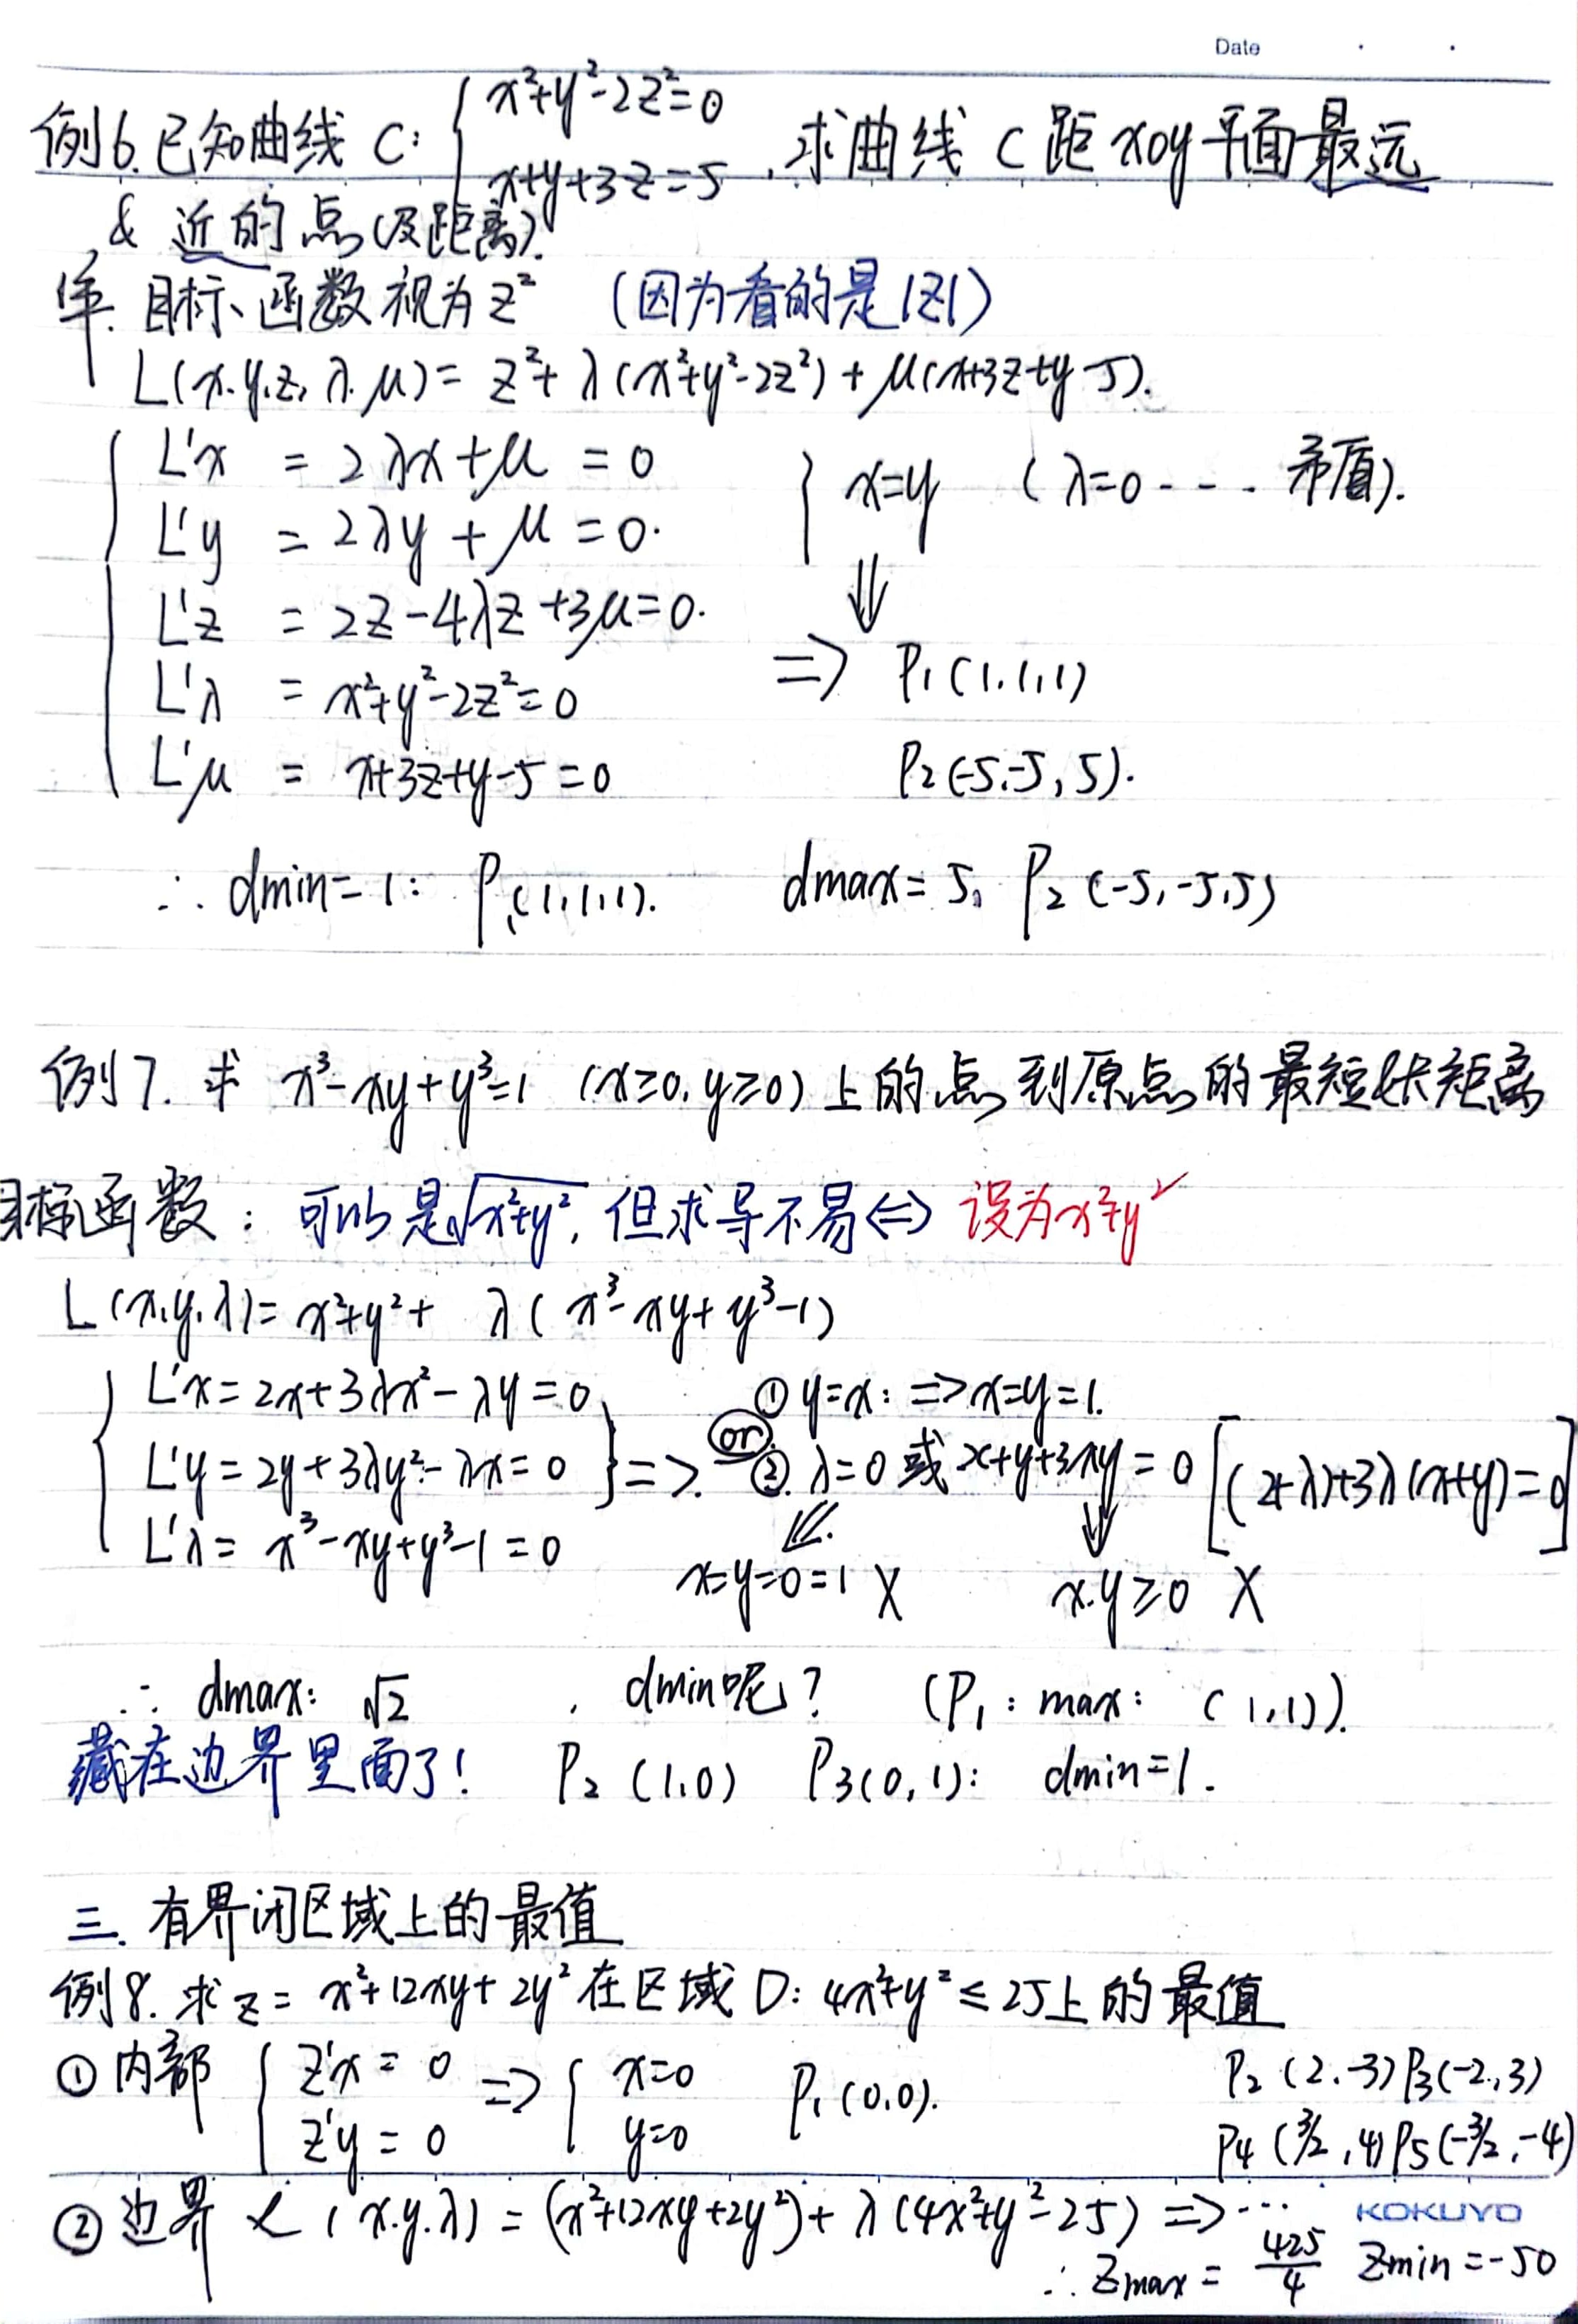 Date
例6. 已知曲线 C: { x²+y²-2z²=0
x+y+3z=5 , 求曲线 C 距 xoy 平面最远
& 近的点(及距离).
解. 目标函数视为 z² (因为看的是|z|)
L(x.y.z, λ.μ) = z²+ λ(x²+y²-2z²) + μ(x+3z+y-5).
L'x = 2λx+μ = 0 } x=y (λ=0 - - - 矛盾).
L'y = 2λy + μ = 0.
L'z = 2z-4λz+3μ=0. ⇓
L'λ = x²+y²-2z²=0 => P₁(1.1,1)
L'μ = x+3z+y-5=0 P₂(-5.-5, 5).
∴ dmin=1: P₁(1,1,1). dmax=5. P₂(-5,-5,5)
例7. 求 x³-xy+y³=1 (x≥0. y≥0) 上的点到原点的最短&长距离
目标函数: 可以是√x²+y², 但求导不易 <=> 设为x²+y²
L(x.y.λ)= x²+y²+ λ( x³-xy+y³-1)
L'x=2x+3λx²-λy=0 ① y=x: =>x=y=1.
L'y=2y+3λy²-λx=0 } => or ②. λ=0 或 x+y+3xy=0 [(2+λ)+3λ(x+y)=0]
L'λ= x³-xy+y³-1=0 ⇙ ⇓
x=y=0=1 X x.y≥0 X
∴ dmax: √2 , dmin呢? (P₁: max: (1,1)).
藏在边界里面了! P₂(1.0) P₃(0,1): dmin=1.
三. 有界闭区域上的最值
例8. 求z= x²+12xy+2y² 在区域 D: 4x²+y²≤25上的最值
① 内部 { z'x = 0 => { x=0 P₁(0.0). P₂(2.-3) P₃(-2,3)
z'y = 0 y=0 P₄(3/2,4) P₅(-3/2,-4)
② 边界 L(x.y.λ) = (x²+12xy+2y²)+λ(4x²+y²-25) => ...
KOKUYO
∴ Zmax = 425/4 Zmin=-50